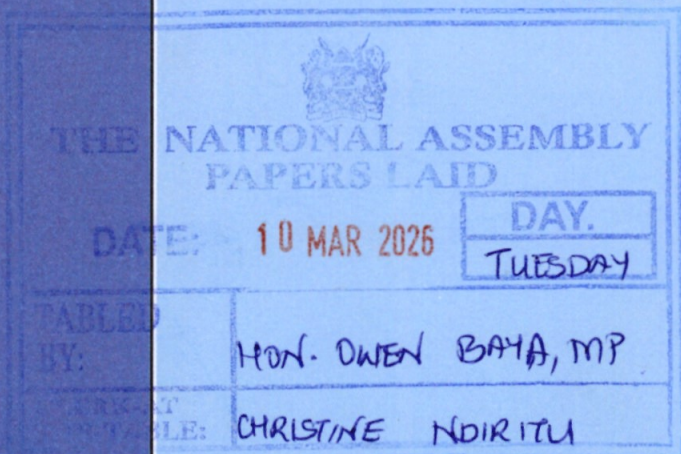 THE NATIONAL ASSEMBLY
PAPERS LAID
DATE: 10 MAR 2026 DAY.
TUESDAY
TABLED
BY: HON. OWEN BAYA, MP
CLERK-AT
THE-TABLE: CHRISTINE NDIRITU